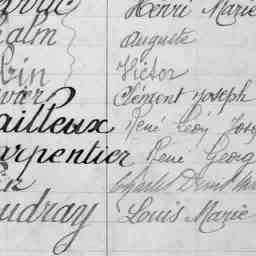 Henri Marie
alm Auguste
bin Victor
vrier Clément Joseph
ailleux René Léon Jose
arpentier René Georg
in Charles Denis
udray Louis Marie